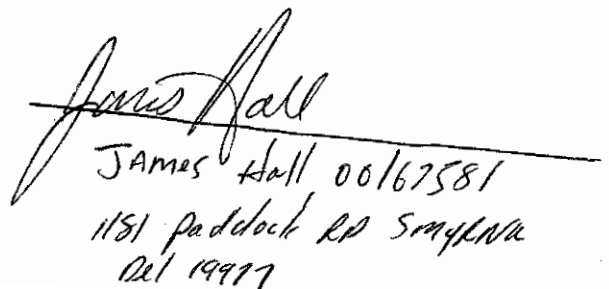 James Hall
JAmes Hall 00167581
1181 Paddock RD SmyRNa
Del 19977